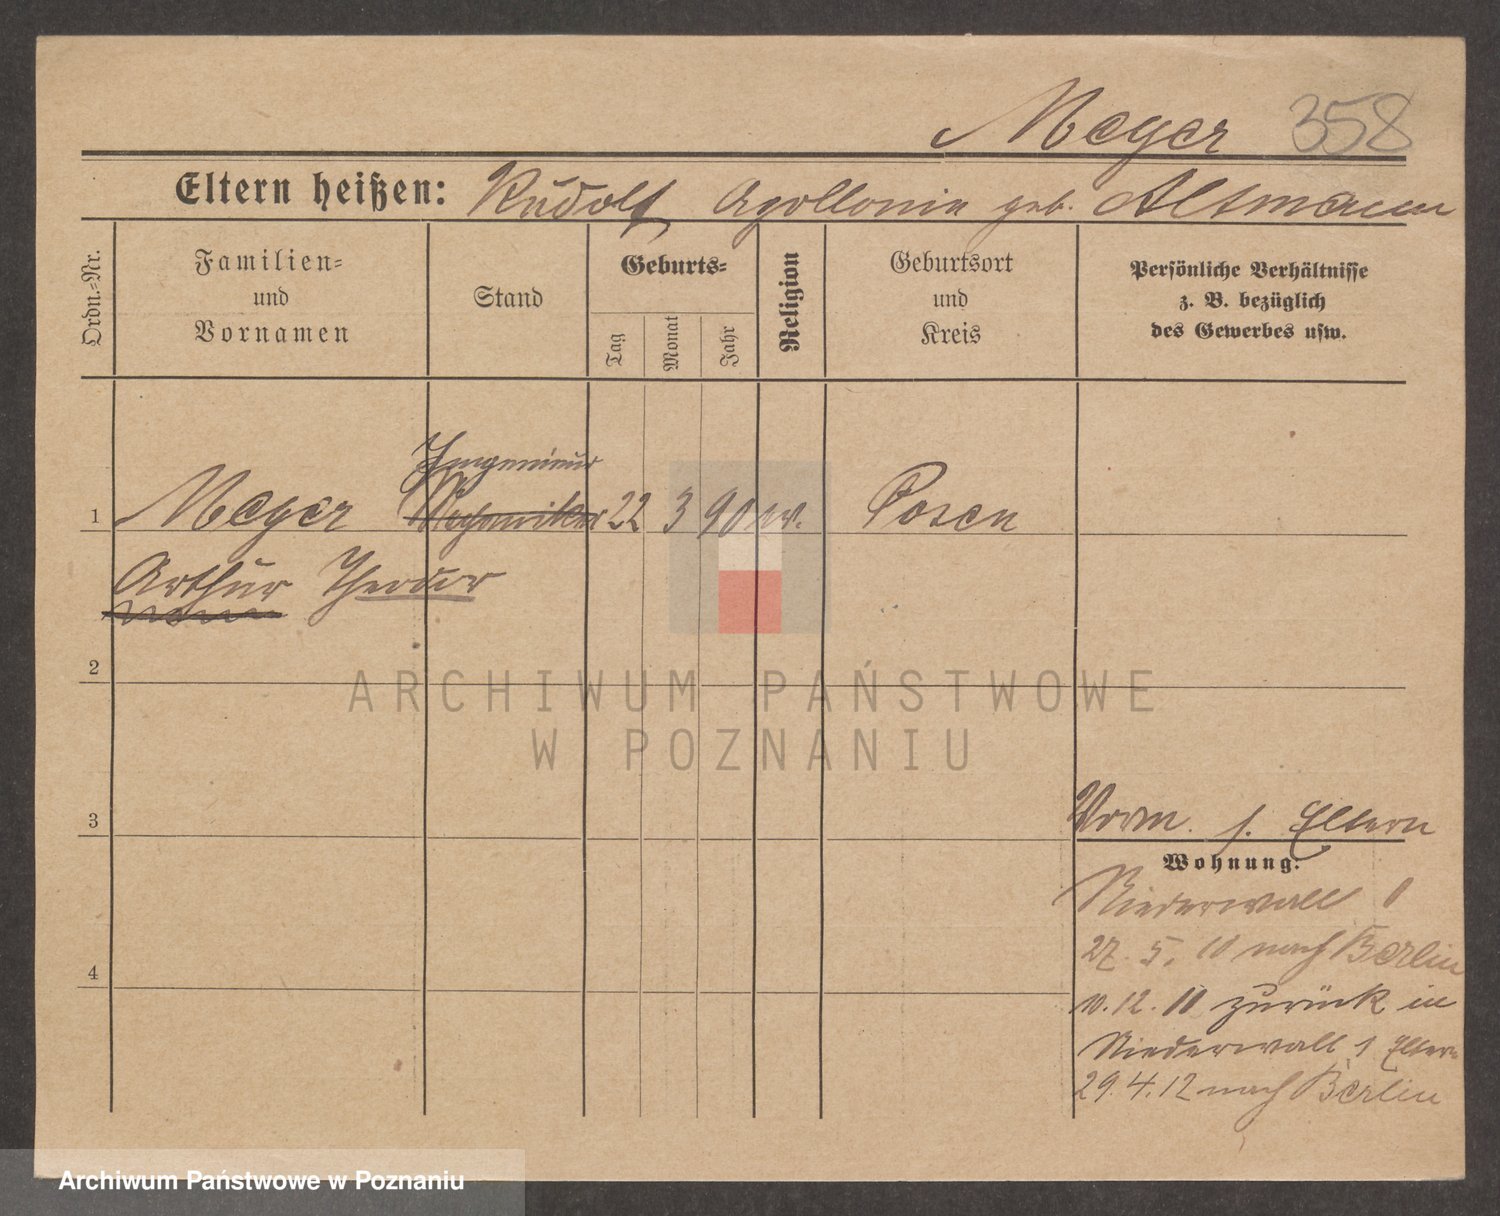 Meyer 358
Eltern heißen: Rudolf Apollonia geb. Altmann
Ordn.-Nr.
Familien-
und
Vornamen
Stand
Geburts-
Tag
Monat
Jahr
Religion
Geburtsort
und
Kreis
Persönliche Verhältnisse
z. B. bezüglich
des Gewerbes usw.
Ingenieur
1 Meyer 22 3 90 ev. Posen
Arthur Theodor
2
ARCHIWUM PAŃSTWOWE
W POZNANIU
3
Vorm. s. Eltern
Wohnung:
Niederwall 1
27. 5. 10 nach Berlin
4
10. 12. 10 zurück in
Niederwall 1 Eltern
29. 4. 12 nach Berlin
Archiwum Państwowe w Poznaniu